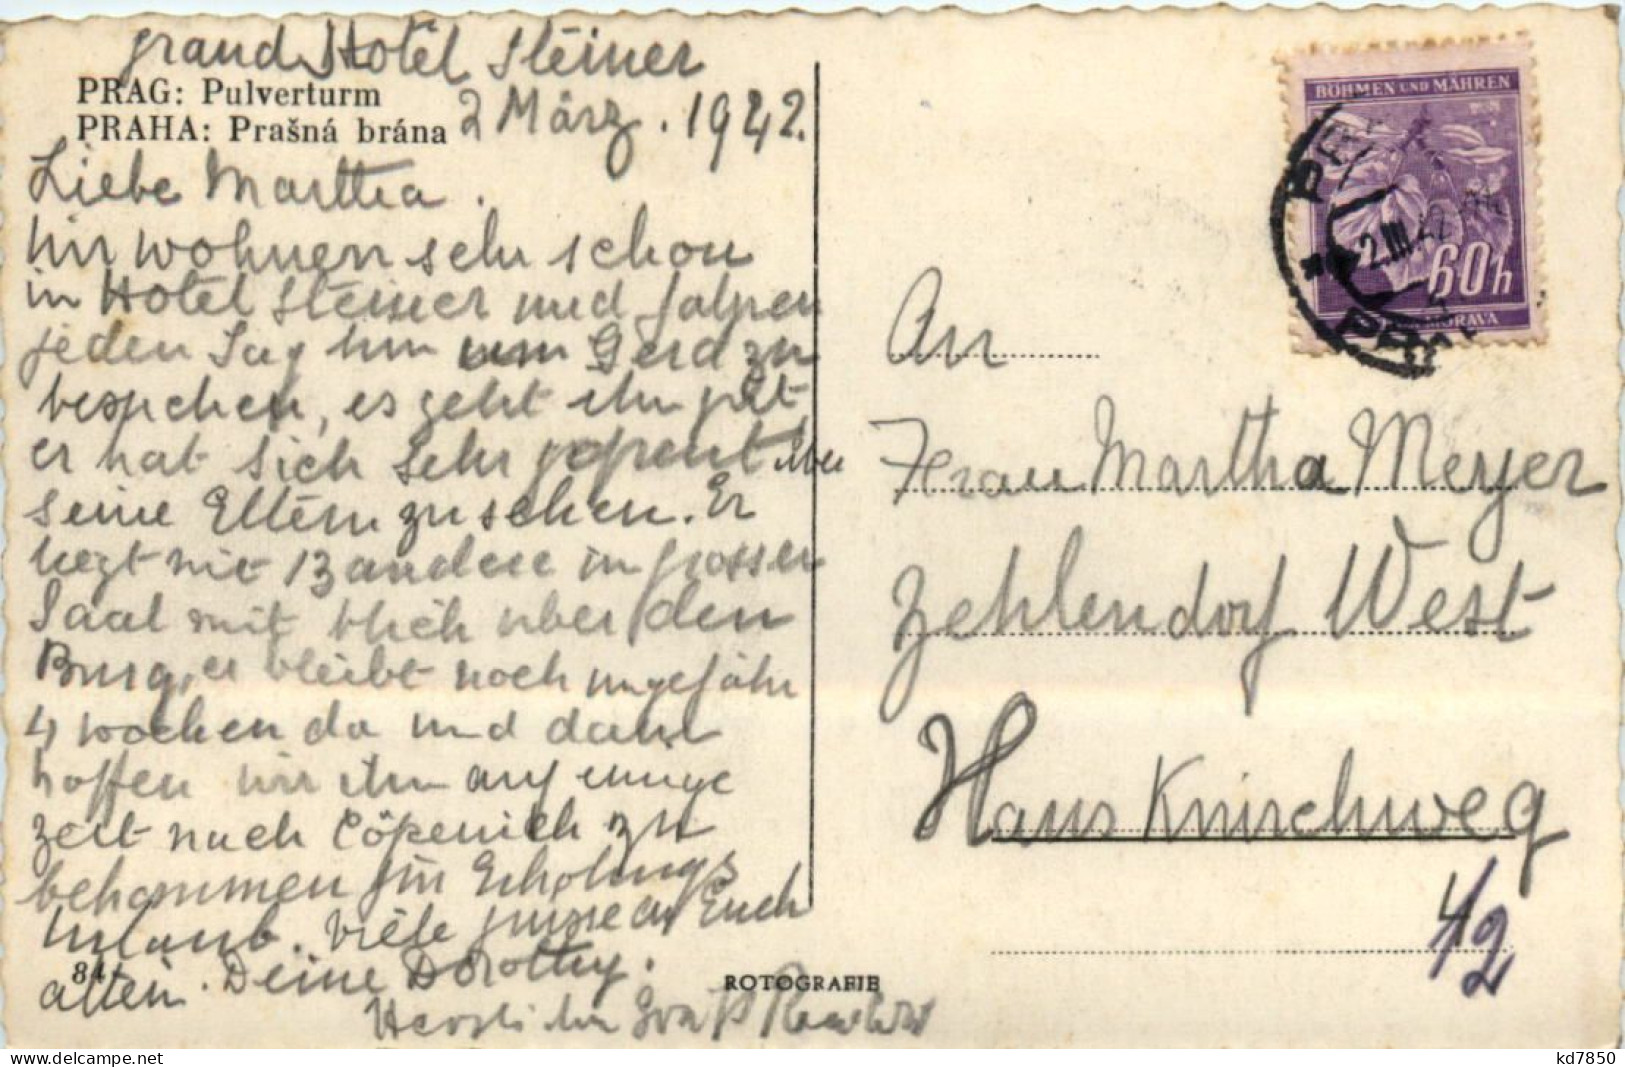 Grand Hotel Steiner
PRAG: Pulverturm
PRAHA: Prašná brána
2 März. 1942.
Liebe Martha.
Wir wohnen sehr schön
in Hotel Steiner und
jeden Tag hin um Gerd zu
besuchen, es geht ihm gut
er hat sich sehr gefreut
seine Eltern zu sehen. Er
liegt mit 13 andere in grossen
Saal mit blick uber den
Burg, er bleibt noch ungefähr
4 wochen da und dann
hoffen wir ihn auf einige
zeit nach Cöpenick zu
bekommen für Erholungs
Urlaub. Viele grüsse an Euch
allen. Deine Dorothy.
84
ROTOGRAFIE
BÖHMEN UND MÄHREN
60h
MORAVA
2.III.42
An
Frau Martha Meyer
Zehlendorf West
Hans Knirschweg
12
kd7850